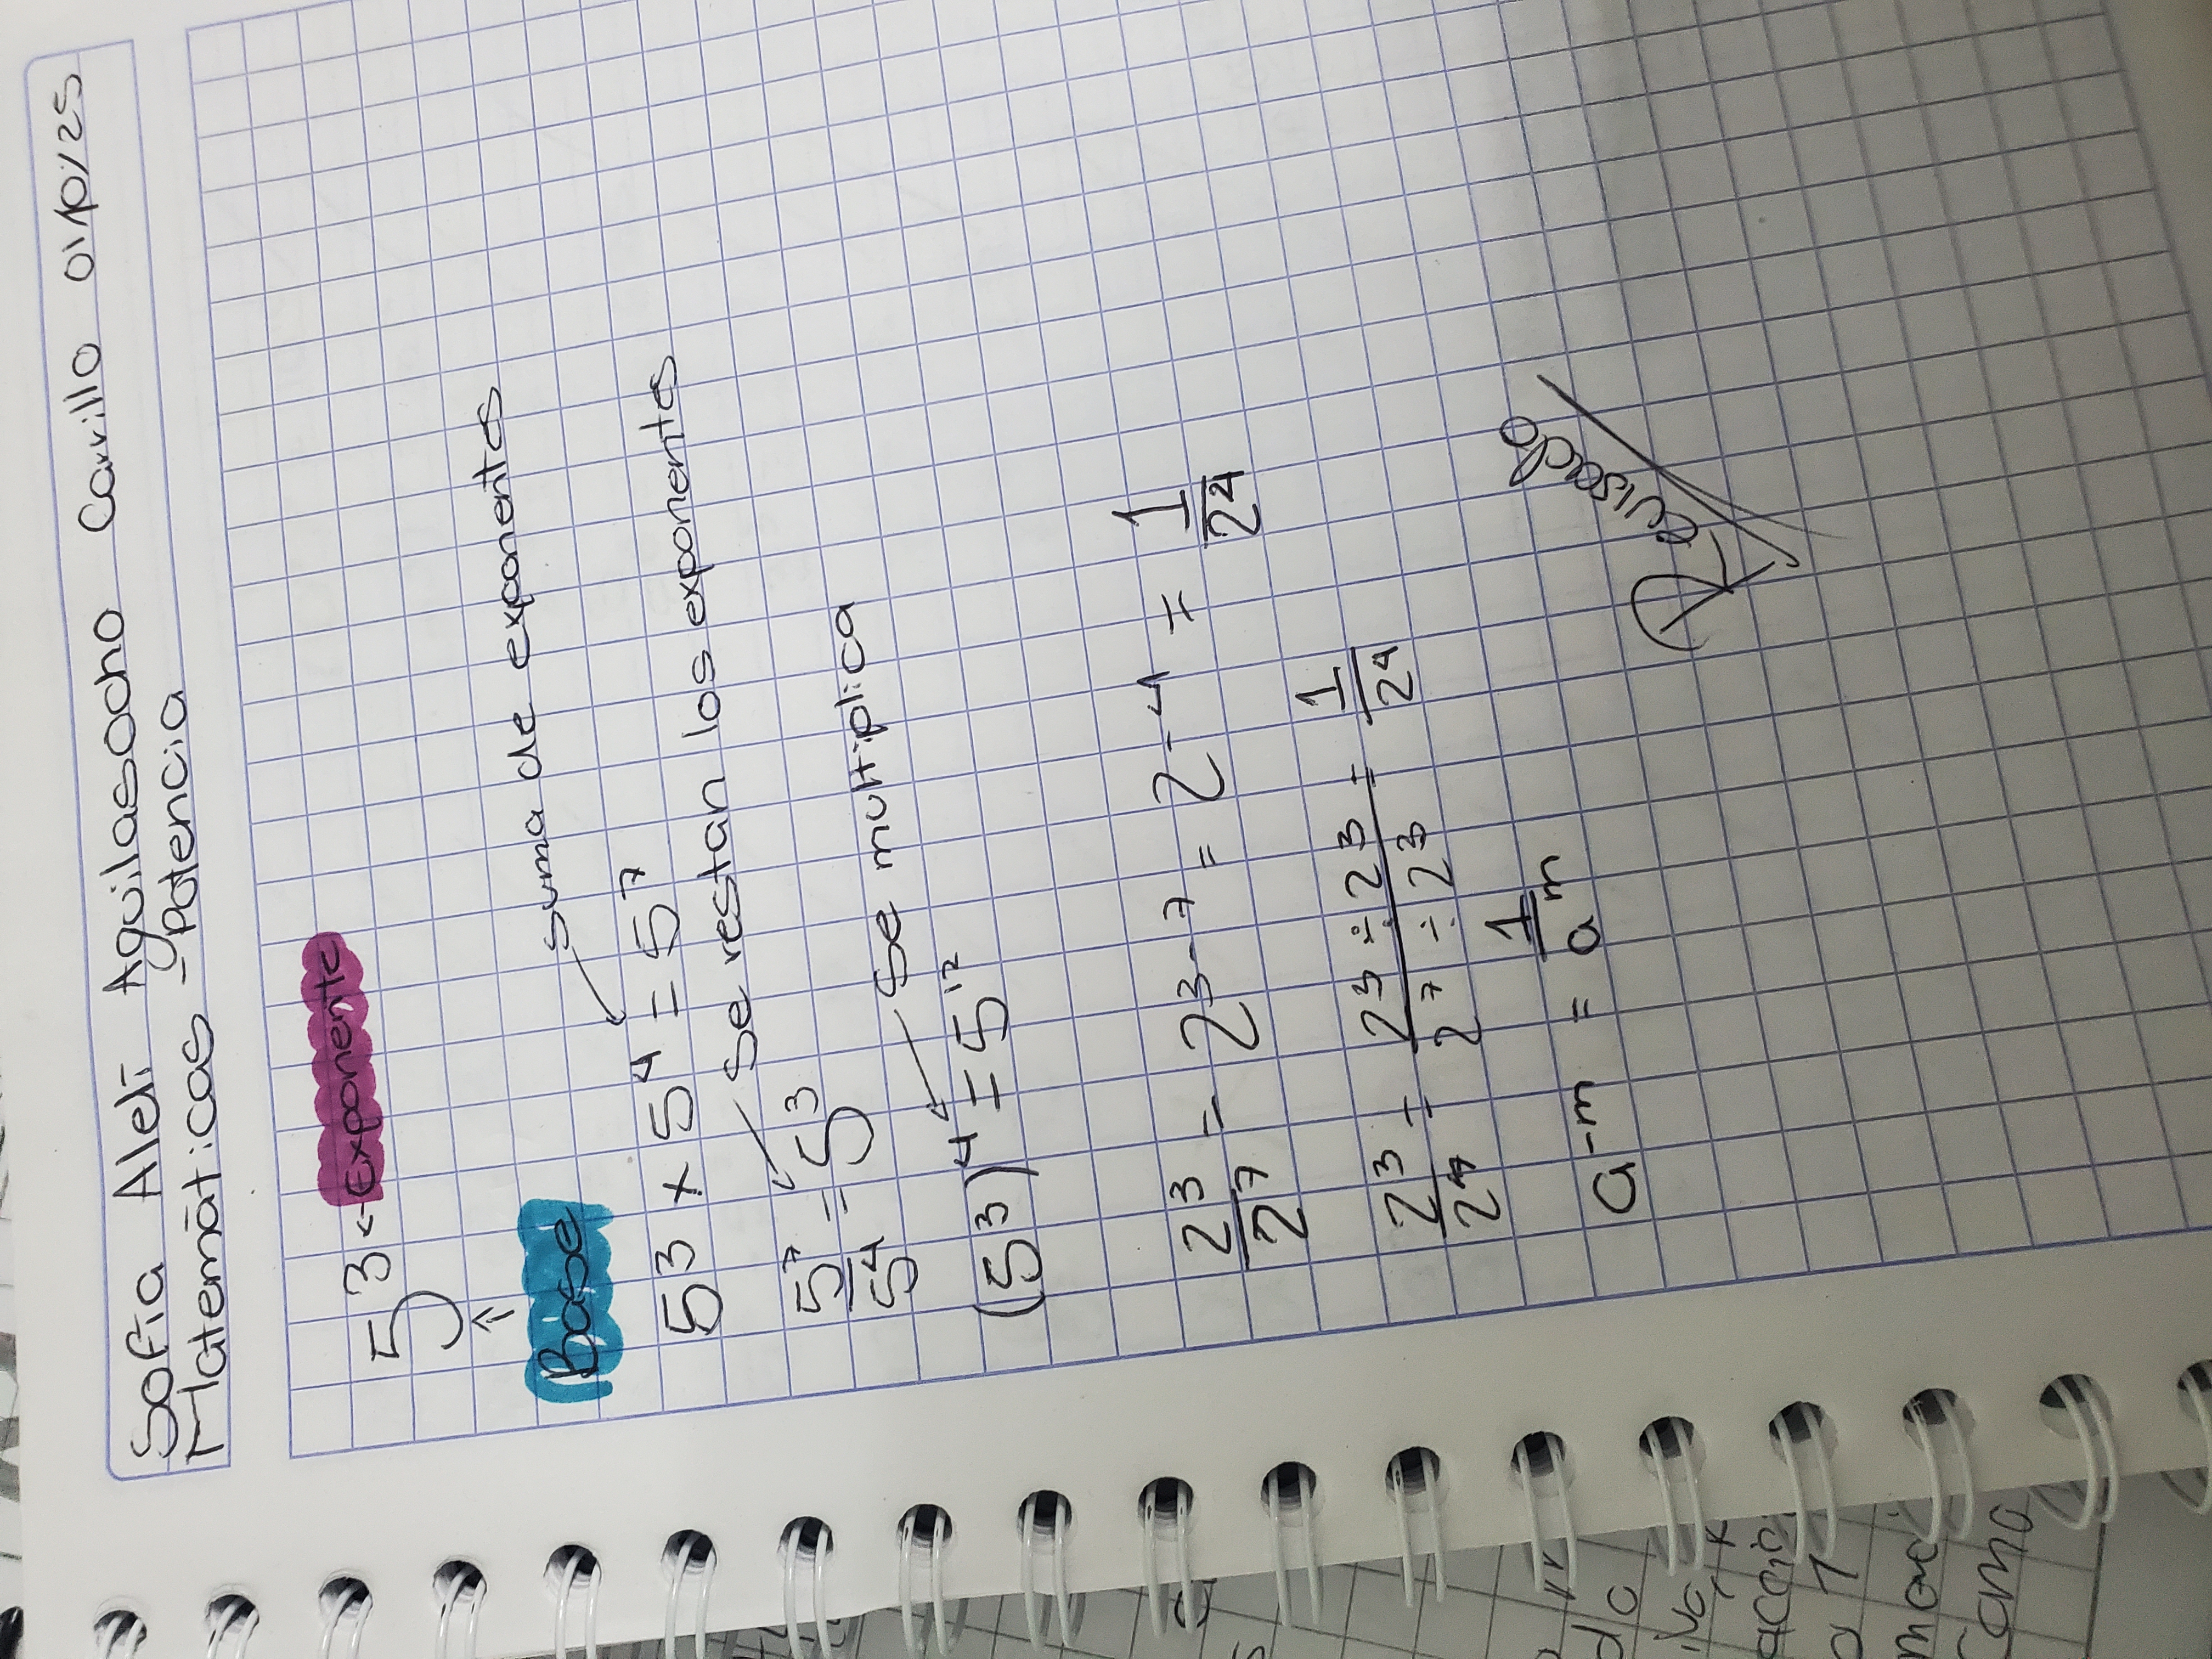 Sofia Aleli Aguilasocho Carrillo 01/10/25
Matemáticas -Potencia
5³ ← Exponente
↑
Base
suma de exponentes
5³ x 5⁴ = 5⁷
se restan los exponentes
5⁷/5⁴ = 5³
se multiplica
(5³)⁴ = 5¹²
2³/2⁷ = 2³⁻⁷ = 2⁻⁴ = 1/2⁴
2³/2⁷ = 2³÷2³/2⁷÷2³ = 1/2⁴
a⁻ᵐ = 1/aᵐ
Revisado